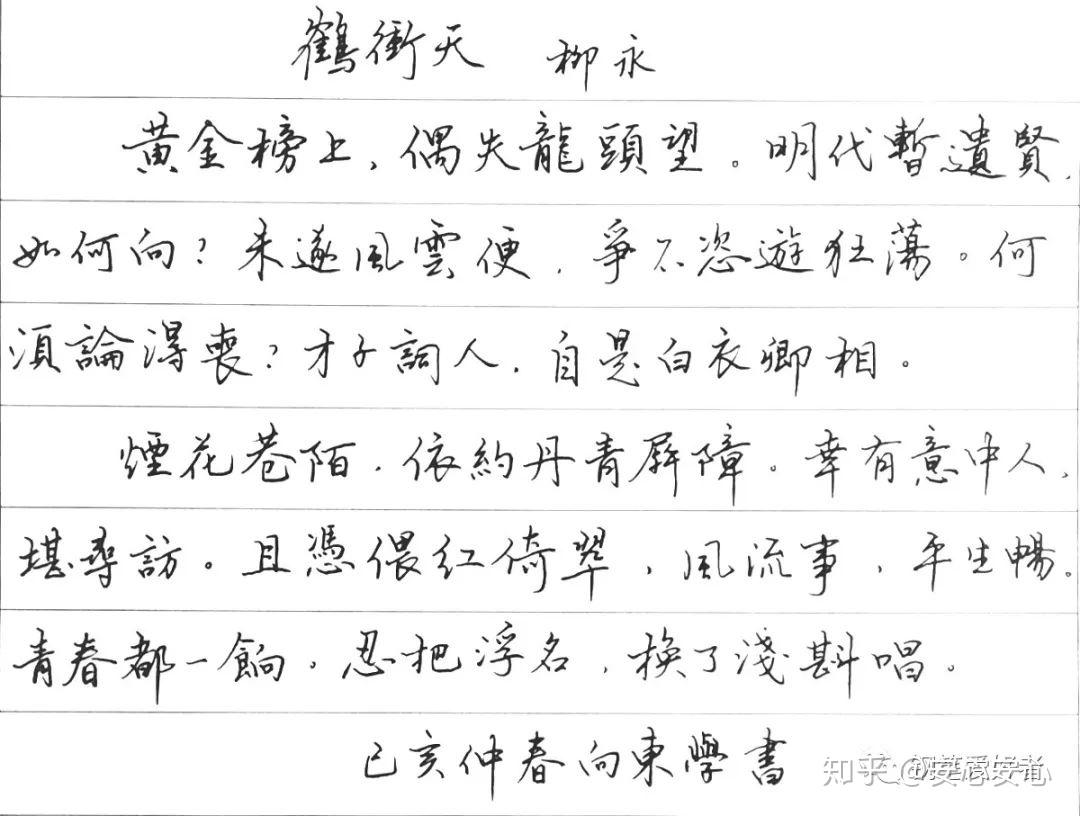 鶴衝天 柳永
黄金榜上，偶失龍頭望。明代暫遺賢，
如何向？未遂風雲便，爭不恣遊狂蕩。何
須論得喪？才子詞人，自是白衣卿相。
煙花巷陌，依約丹青屏障。幸有意中人，
堪尋訪。且憑偎紅倚翠，風流事，平生暢。
青春都一餉。忍把浮名，換了淺斟唱。
己亥仲春向東學書
知乎